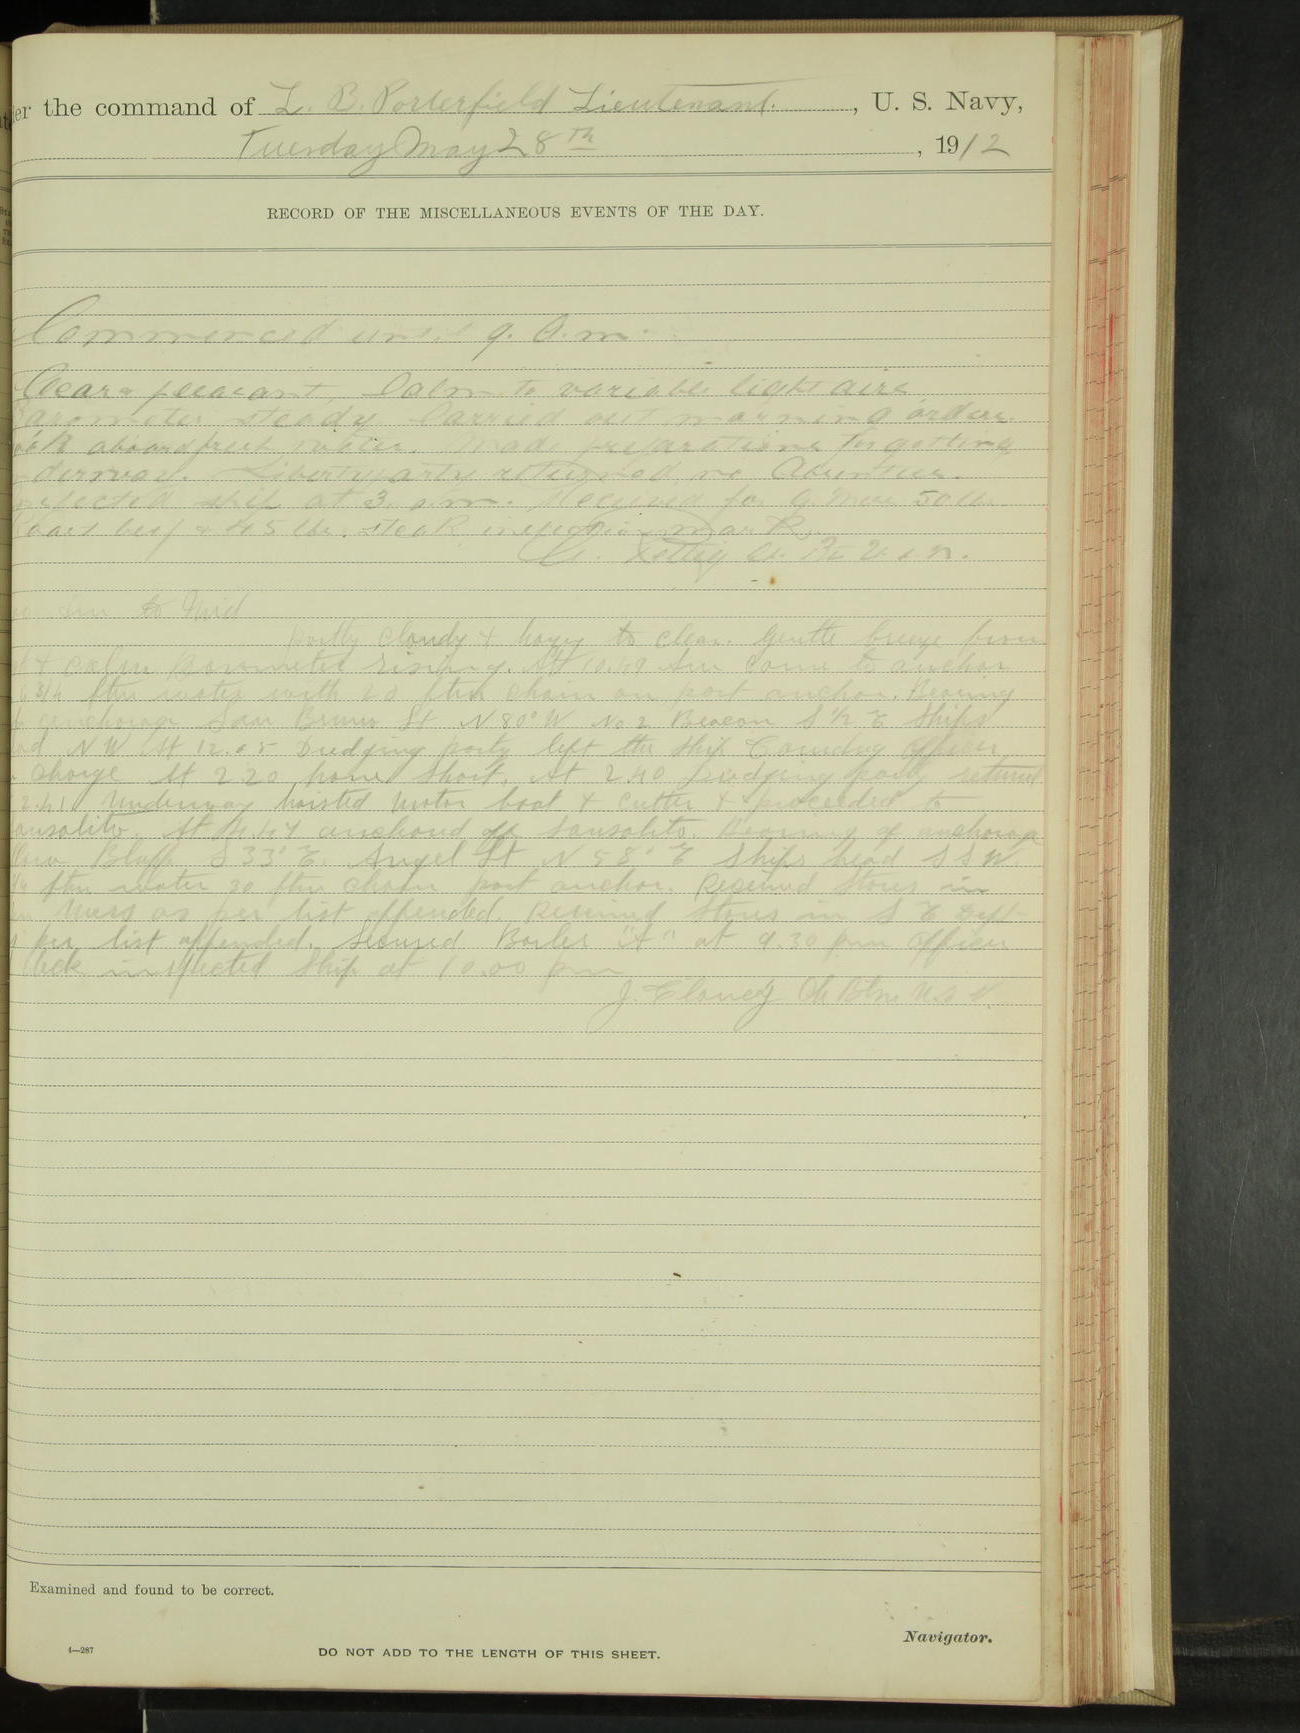 er the command of L. B. Porterfield Lieutenant. , U. S. Navy,
Tuesday May 28th , 1912
RECORD OF THE MISCELLANEOUS EVENTS OF THE DAY.
Commenced until 9. a.m.
Clear & pleasant, Calm to variable light airs
Barometer steady. Carried out morning orders.
aboard fresh water. Made preparations for getting
underway. Liberty party returned, no Absentees.
inspected ship at 3. a.m. Received for G. Mess 50 lbs.
roast beef & 45 lbs. steak, inspection mark
U.S.N.
am to Mid
Partly Cloudy & hazy to clear. Gentle breeze from
& calm Barometer rising. At 10.49 Am Came to anchor
ftm water with 20 ftm chain on port anchor. Bearing
anchorage San Bruno Lt N 80° W No 2 Beacon S 1/2 E Ships
ad N W At 12.05 Dredging party left the ship Comdng Officer
charge At 2 20 hove short. At 2.40 Dredging party returned
2.41 Underway hoisted motor boat & cutter & proceeded to
ausalito. At anchored off Sausalito. Bearing of anchorage
Bluff S 33° E. Angel Lt N 58° E Ships head S S W.
ftm water 20 ftm chain port anchor. Received stores in
Mess as per list appended. Received Stores in S E Dept
per list appended. Secured Boiler "A" at 9.30 pm Officer
deck inspected ship at 10.00 pm
J. Clancy Ch Btsn U.S.N.
Examined and found to be correct.
Navigator.
4—287
DO NOT ADD TO THE LENGTH OF THIS SHEET.